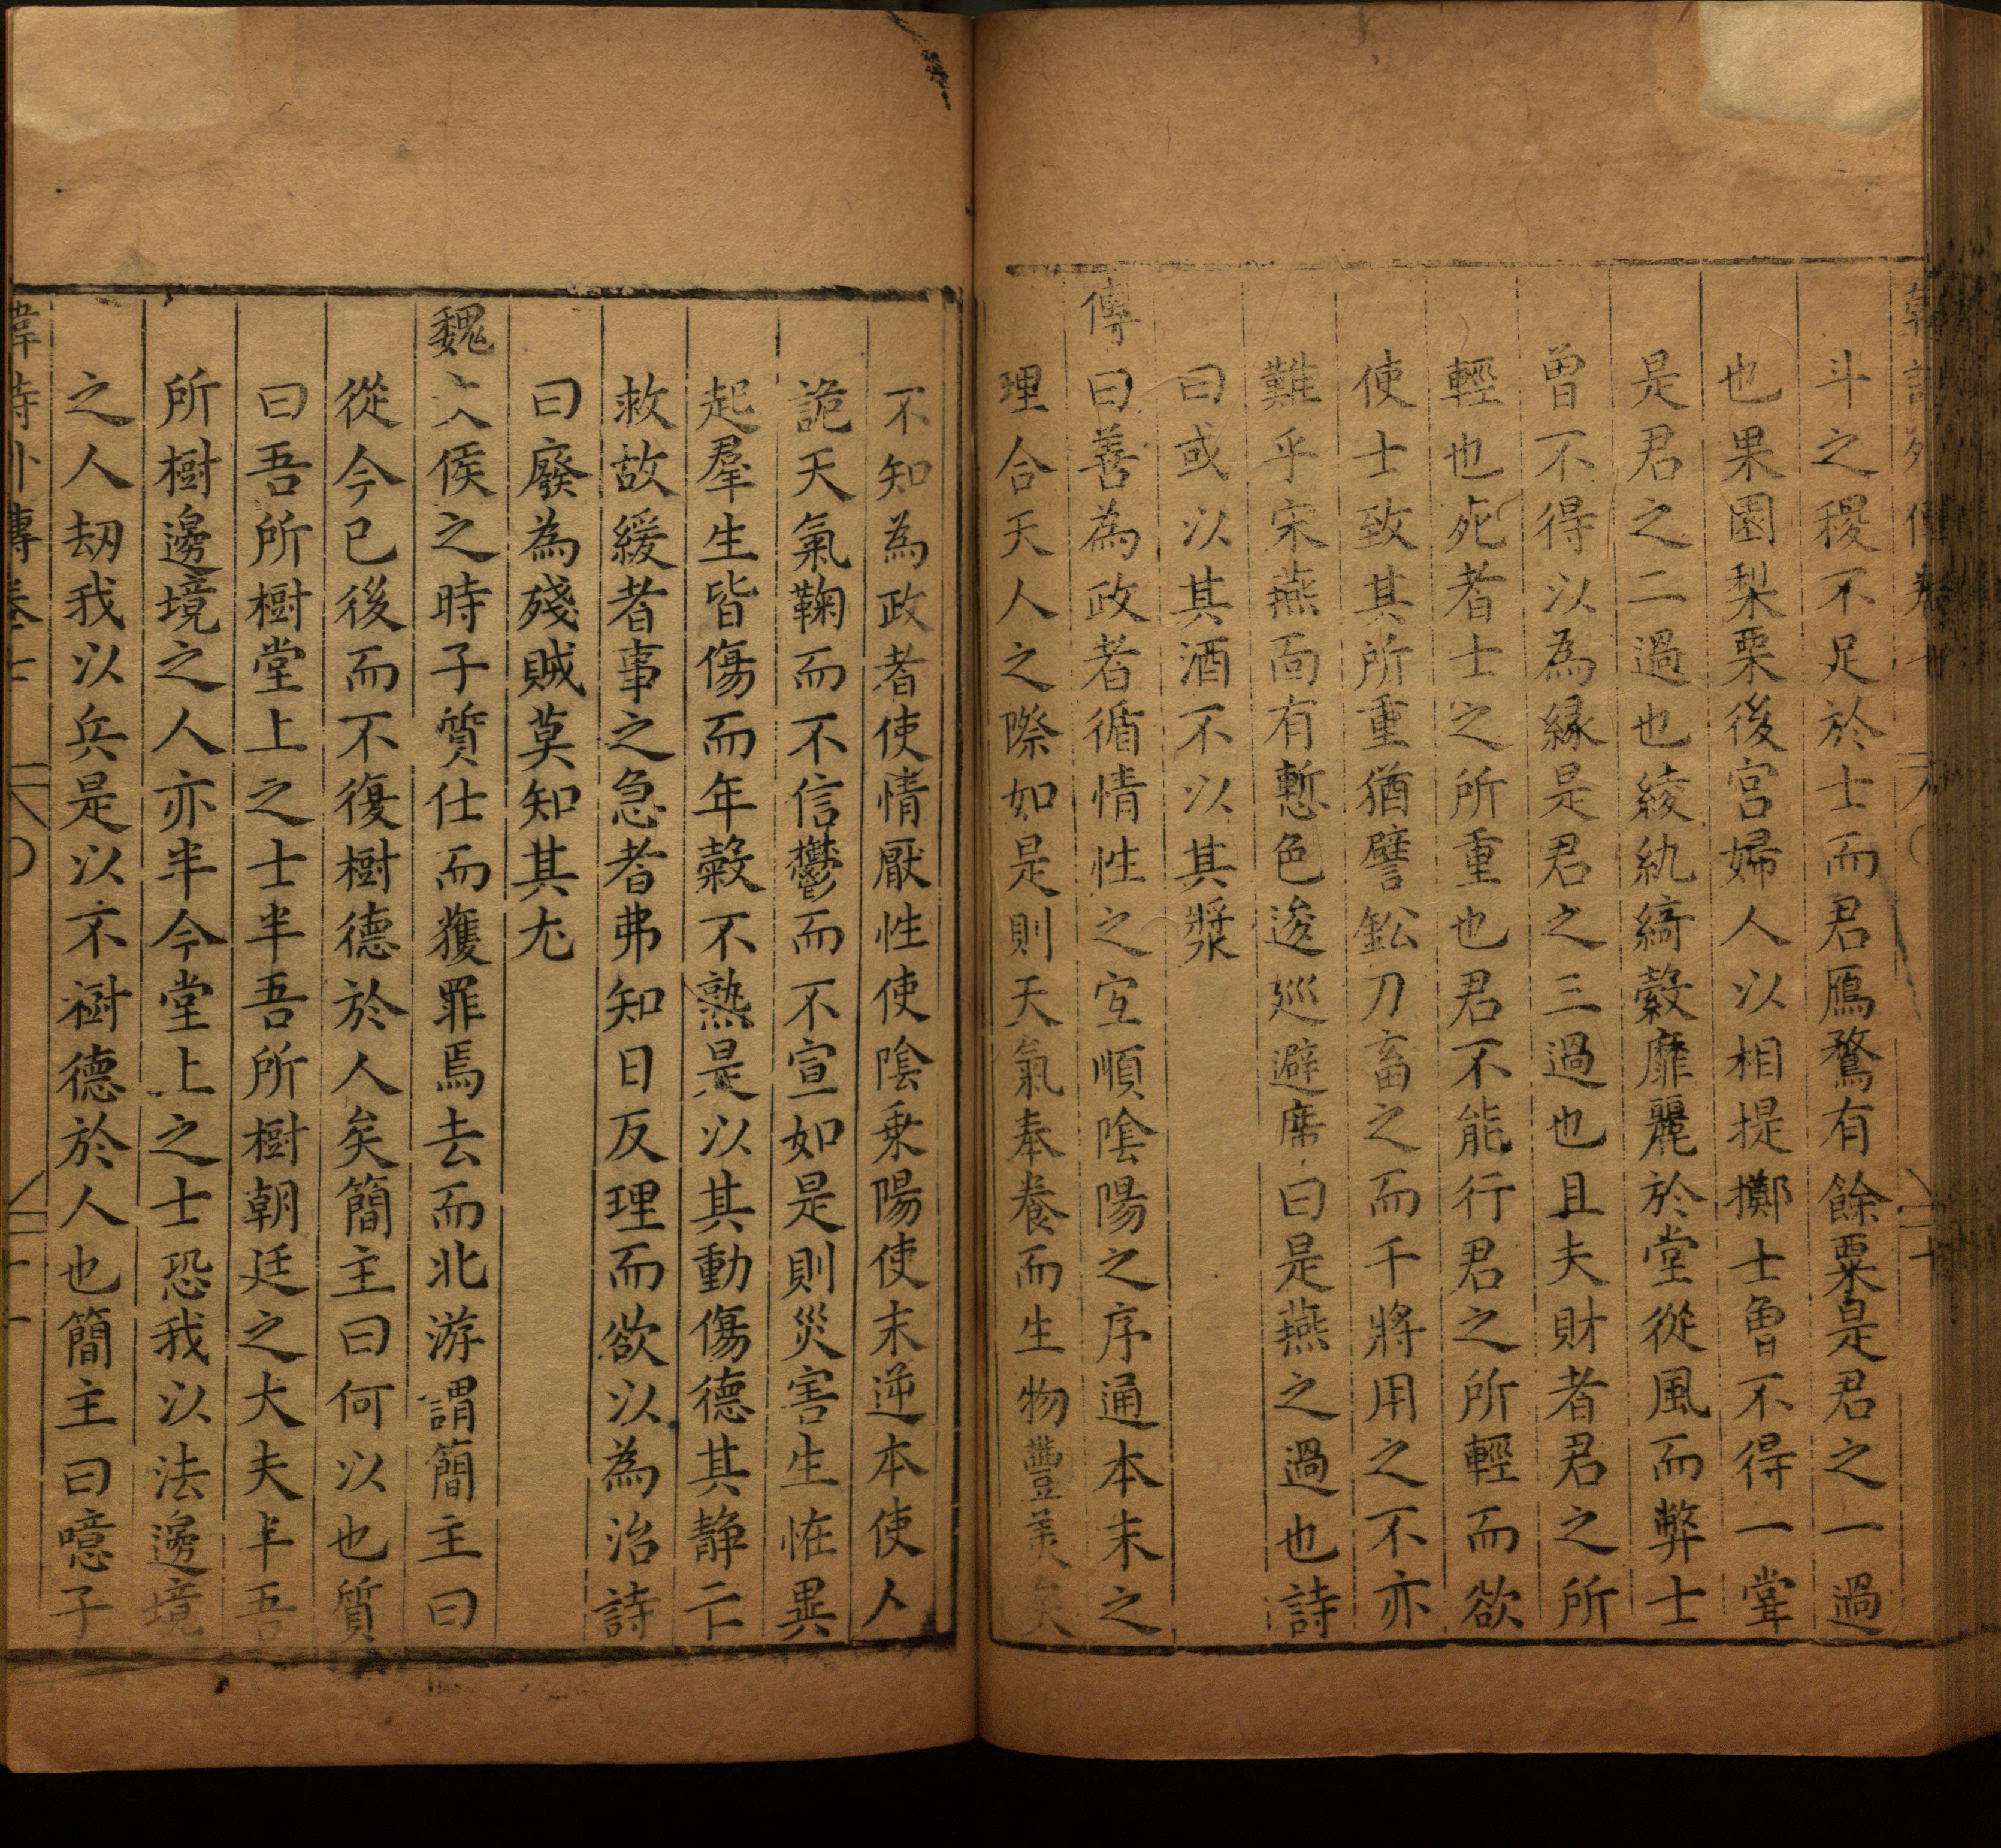 斗之稷不足於士而君鴈鶩有餘粟是君之一過
也果園梨栗後宮婦人以相提擲士曾不得一甞
是君之二過也綾紈綺縠靡麗於堂從風而弊士
曾不得以為緣是君之三過也且夫財者君之所
輕也死者士之所重也君不能行君之所輕而欲
使士致其所重猶譬鈆刀畜之而干將用之不亦
難乎宋燕靣有慙色逡巡避席曰是燕之過也詩
曰或以其酒不以其漿
傳曰善為政者循情性之宜順陰陽之序通本末之
理合天人之際如是則天氣奉養而生物豐美矣
不知為政者使情厭性使陰乗陽使末逆本使人
詭天氣鞠而不信鬱而不宣如是則災害生恠異
起羣生皆傷而年穀不熟是以其動傷德其静亡
救故緩者事之急者弗知日反理而欲以為治詩
曰廢為殘賊莫知其尤
魏文侯之時子質仕而獲罪焉去而北游謂簡主曰
從今已後而不復樹德於人矣簡主曰何以也質
曰吾所樹堂上之士半吾所樹朝廷之大夫半吾
所樹邊境之人亦半今堂上之士恐我以法邊境
之人刼我以兵是以不樹德於人也簡主曰噫子